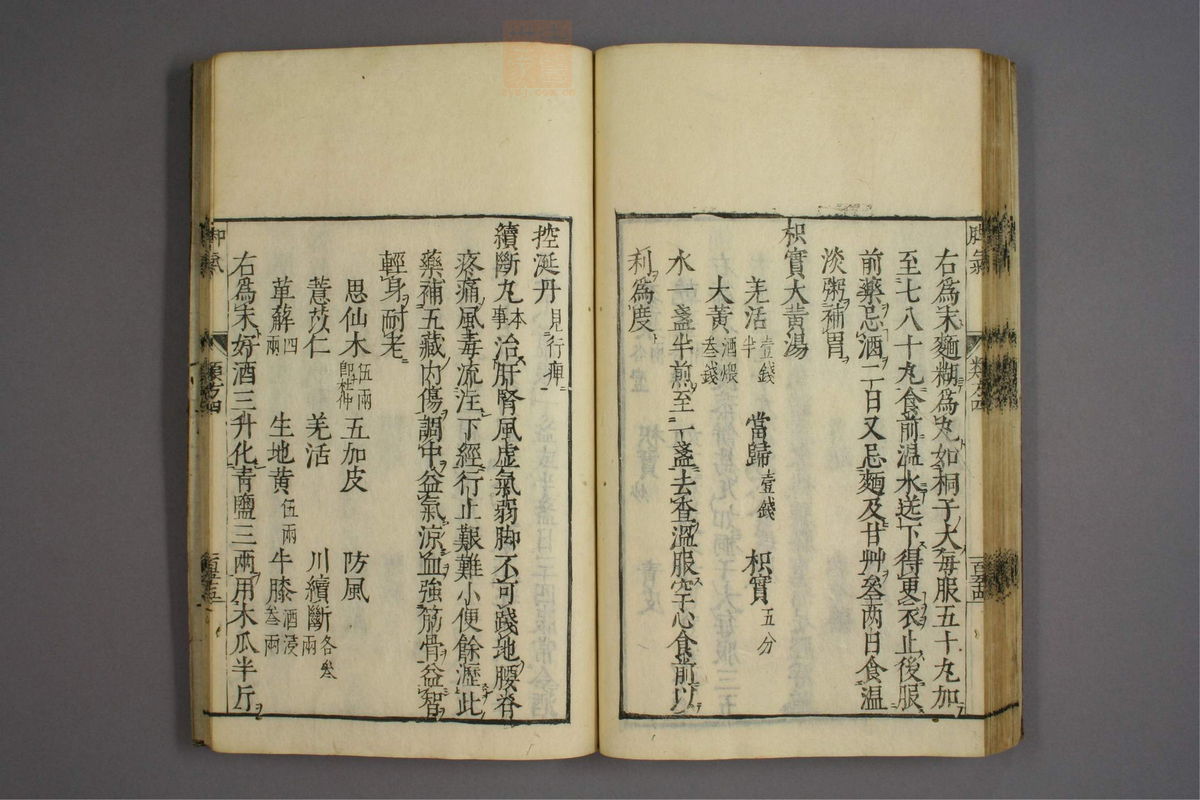 右為末麵糊為丸如桐子大每服五十丸加
至七八十丸食前温水送下得更衣止後服
前藥忌酒二日又忌麵及甘艸叄两日食温
淡粥補胃
枳實大黃湯
羌活壹錢半 當歸壹錢 枳實五分
大黃酒煨叄錢
水一盞半煎至一盞去查溫服空心食前以
利為度
控涎丹見行痺
續斷丸本事治肝腎風虚氣弱脚不可踐地腰脊
疼痛風毒流注下經行止艱難小便餘瀝此
藥補五藏内傷調中益氣凉血強筋骨益智
輕身耐老
思仙木伍兩即杜仲 五加皮 防風
薏苡仁 羌活 川續斷各叄兩
萆薢四兩 生地黄伍兩 牛膝酒浸叄兩
右為末好酒三升化青鹽三兩用木瓜半斤
脚氣
類方四